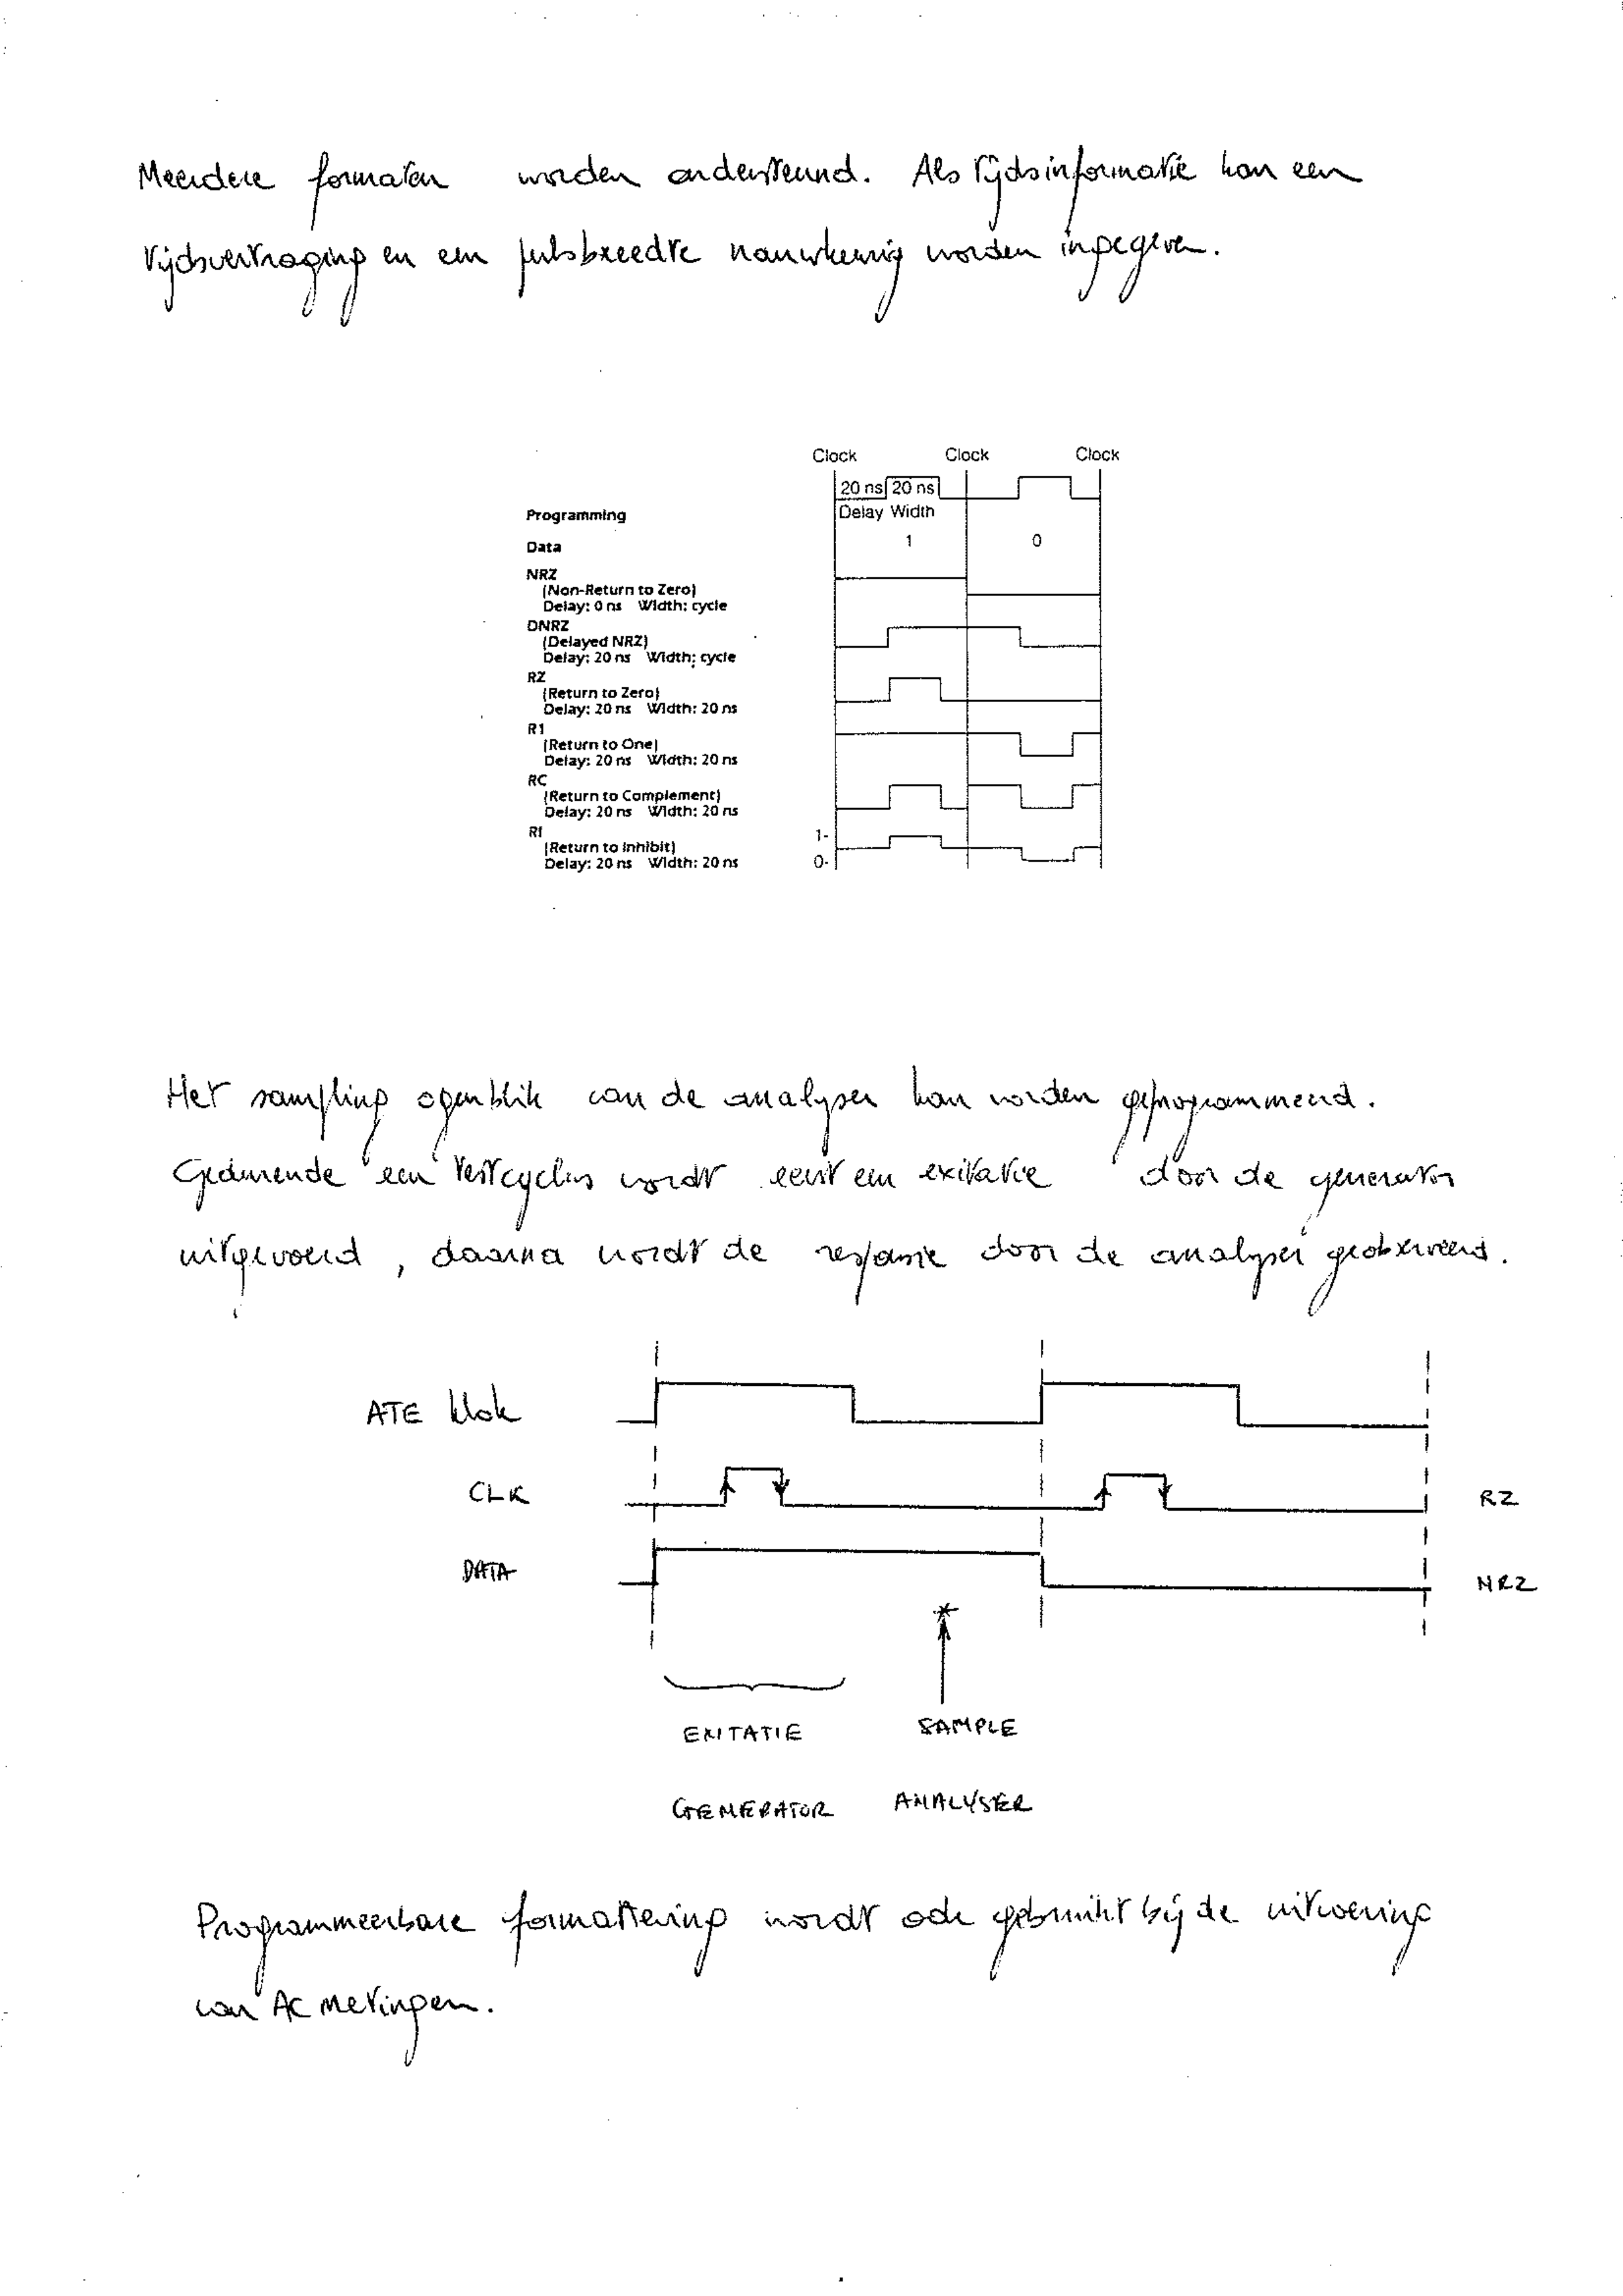 Meerdere formaten worden ondersteund. Als tijdsinformatie kan een
tijdsvertraging en een pulsbreedte nauwkeurig worden ingegeven.
Clock Clock Clock
20 ns 20 ns
Programming Delay Width
Data 1 0
NRZ
(Non-Return to Zero)
Delay: 0 ns Width: cycle
DNRZ
(Delayed NRZ)
Delay: 20 ns Width: cycle
RZ
(Return to Zero)
Delay: 20 ns Width: 20 ns
R1
(Return to One)
Delay: 20 ns Width: 20 ns
RC
(Return to Complement)
Delay: 20 ns Width: 20 ns
RI 1-
(Return to Inhibit)
Delay: 20 ns Width: 20 ns 0-
Het sampling ogenblik van de analyser kan worden geprogrammeerd.
Gedurende een testcyclus wordt eerst een exitatie door de generator
uitgevoerd, daarna wordt de responsie door de analyser geobserveerd.
ATE klok
CLK RZ
DATA NRZ
EXITATIE SAMPLE
GENERATOR ANALYSER
Programmeerbare formattering wordt ook gebruikt bij de uitvoering
van AC metingen.